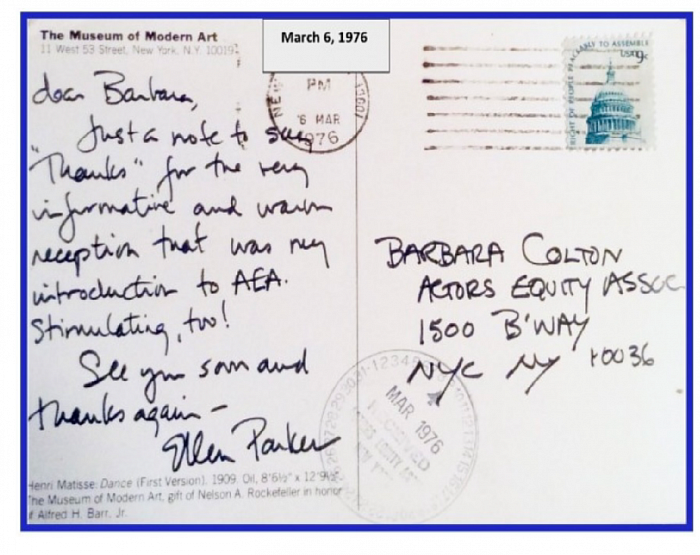 The Museum of Modern Art
11 West 53 Street, New York, N.Y. 10019
March 6, 1976
dear Barbara,
Just a note to say
"Thanks" for the very
informative and warm
reception that was my
introduction to AEA.
Stimulating, too!
See you soon and
thanks again –
Ellen Parker
Henri Matisse: Dance (First Version). 1909. Oil, 8'6½" x 12'9½".
The Museum of Modern Art, gift of Nelson A. Rockefeller in honor
of Alfred H. Barr, Jr.
NE
PM
6 MAR
1976
RIGHT OF PEOPLE PEACEABLY TO ASSEMBLE
US 9c
BARBARA COLTON
ACTORS EQUITY ASSOC
1500 B'WAY
NYC NY 10036
MAR 1976
RECEIVED